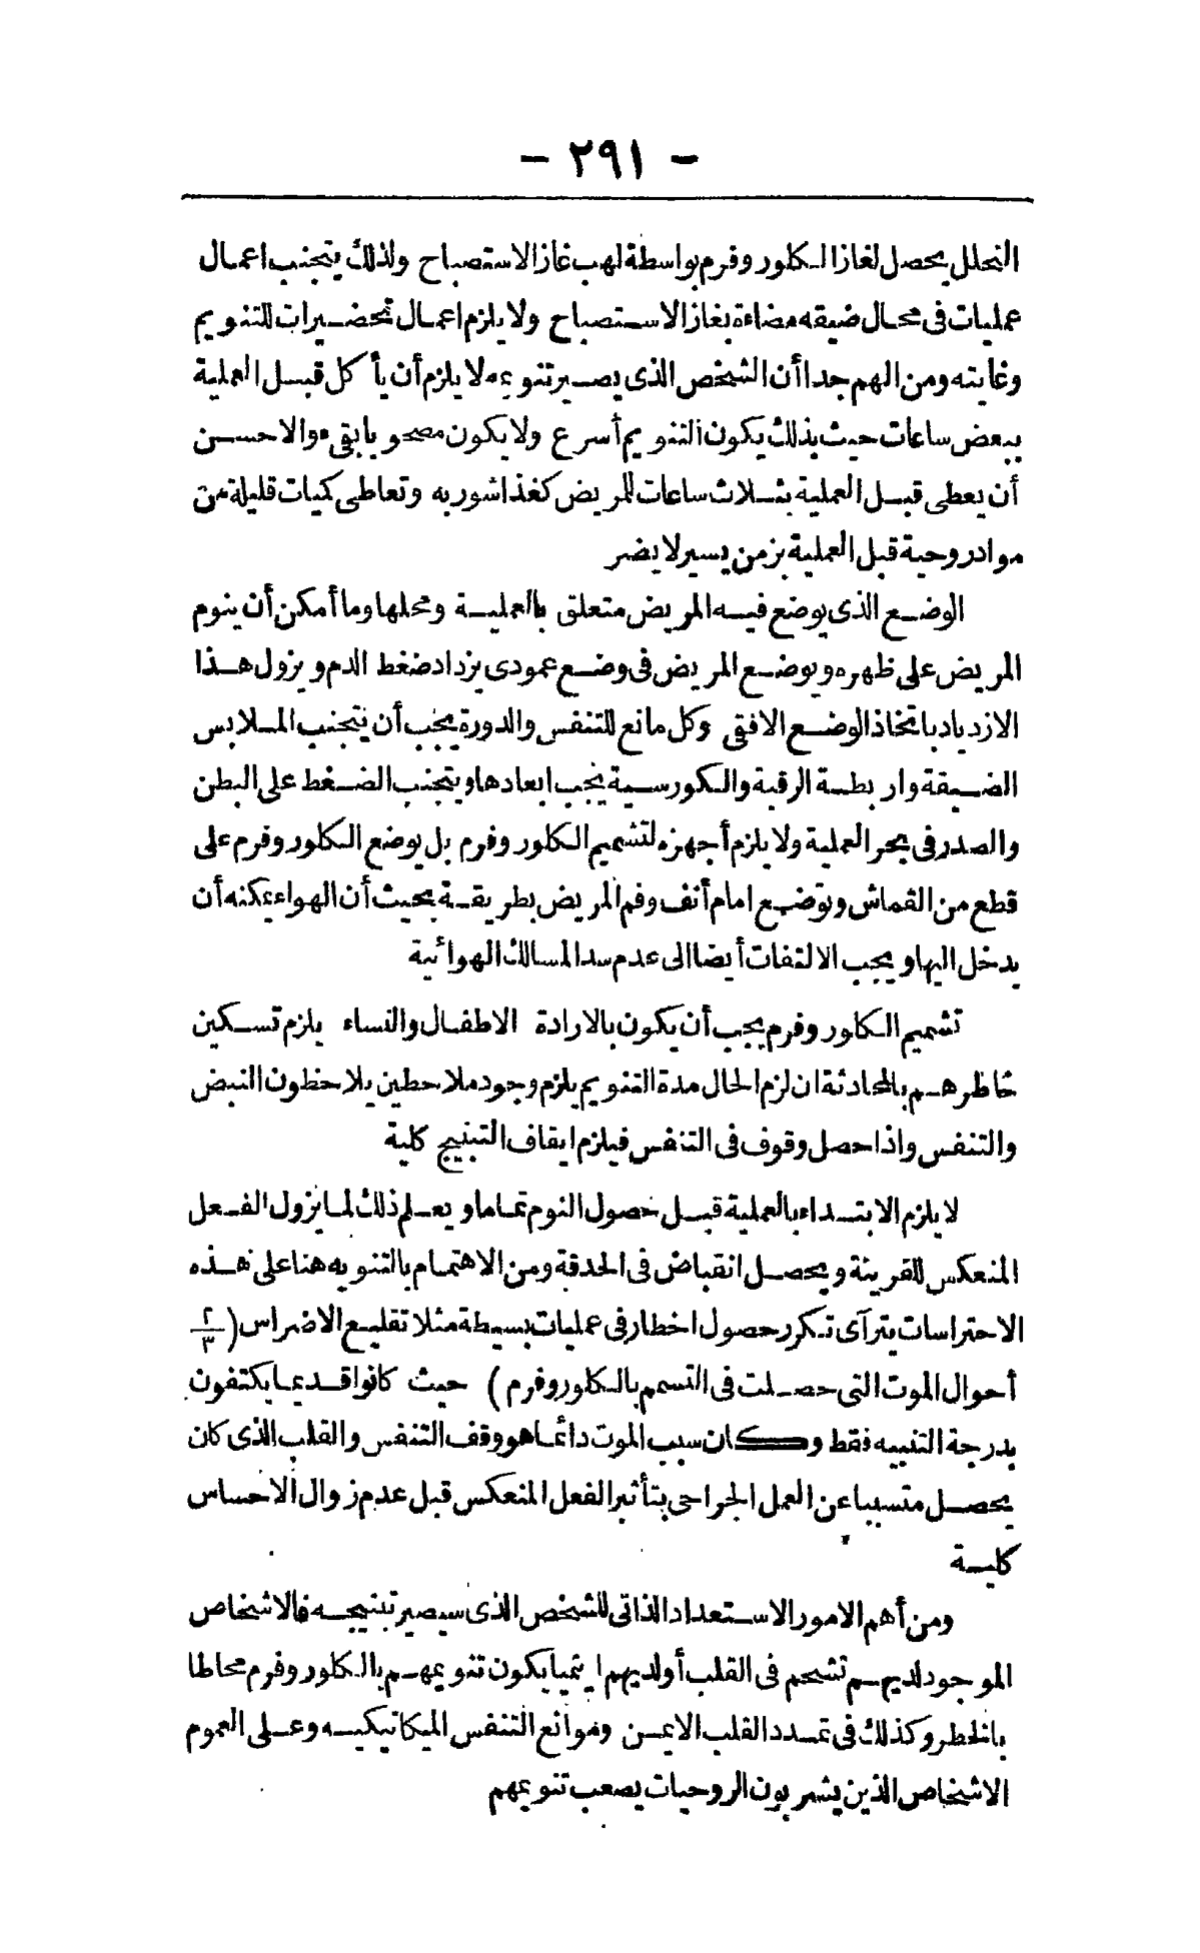 - ٢٩١ -
التحلل يحصل لغاز الكلوروفرم بواسطة لهب غاز الاستصباح ولذلك يتجنب اعمال
عمليات فى محال ضيقه مضاءة بغاز الاستصباح ولا يلزم اعمال تحضيرات للتنويم
وغايته ومن الهم جدا أن الشخص الذى يصير تنويمه لا يلزم أن يأكل قبل العملية
ببعض ساعات حيث بذلك يكون التنويم أسرع ولا يكون مصحوبا بقىء والاحسن
أن يعطى قبل العملية بثلاث ساعات للمريض كغذا شوربه وتعاطى كميات قليلة من
مواد روحية قبل العملية بزمن يسير لا يضر
الوضع الذى يوضع فيه المريض متعلق بالعملية ومحلها وما أمكن أن ينوم
المريض على ظهره وبوضع المريض فى وضع عمودى يزداد ضغط الدم ويزول هذا
الازدياد باتخاذ الوضع الافقى وكل مانع للتنفس والدورة يجب أن يتجنب الملابس
الضيقة واربطة الرقبة والكورسية يجب ابعادها ويتجنب الضغط على البطن
والصدر فى بحر العملية ولا يلزم أجهزه لتشميم الكلوروفرم بل يوضع الكلوروفرم على
قطع من القماش وتوضع امام أنف وفم المريض بطريقة بحيث أن الهواء يمكنه أن
يدخل اليها ويجب الالتفات أيضا الى عدم سد المسالك الهوائية
تشميم الكلوروفرم يجب أن يكون بالارادة الاطفال والنساء يلزم تسكين
خاطرهم بالمحادثة ان لزم الحال مدة التنويم يلزم وجود ملاحظين يلاحظون النبض
والتنفس واذا حصل وقوف فى التنفس فيلزم ايقاف التبنيج كلية
لا يلزم الابتداء بالعملية قبل حصول النوم تماما ويعلم ذلك لما يزول الفعل
المنعكس للقرينة ويحصل انقباض فى الحدقة ومن الاهتمام بالتنويه هنا على هذه
الاحتراسات يترآى تكرر حصول اخطار فى عمليات بسيطة مثلا تقليع الاضراس (٢/٣
أحوال الموت التى حصلت فى التسمم بالكلوروفرم) حيث كانوا قديما يكتفون
بدرجة التنبيه فقط وكان سبب الموت دائما هو وقف التنفس والقلب الذى كان
يحصل متسببا عن العمل الجراحى بتأثير الفعل المنعكس قبل عدم زوال الاحساس
كلية
ومن أهم الامور الاستعداد الذاتى للشخص الذى سيصير تبنيجه فالاشخاص
الموجود لديهم تشحم فى القلب أو لديهم ايتميا يكون تنويمهم بالكلوروفرم محاطا
بالخطر وكذلك فى تمدد القلب الايمن وموانع التنفس الميكانيكيه وعلى العموم
الاشخاص الذين يشربون الروحيات يصعب تنويمهم